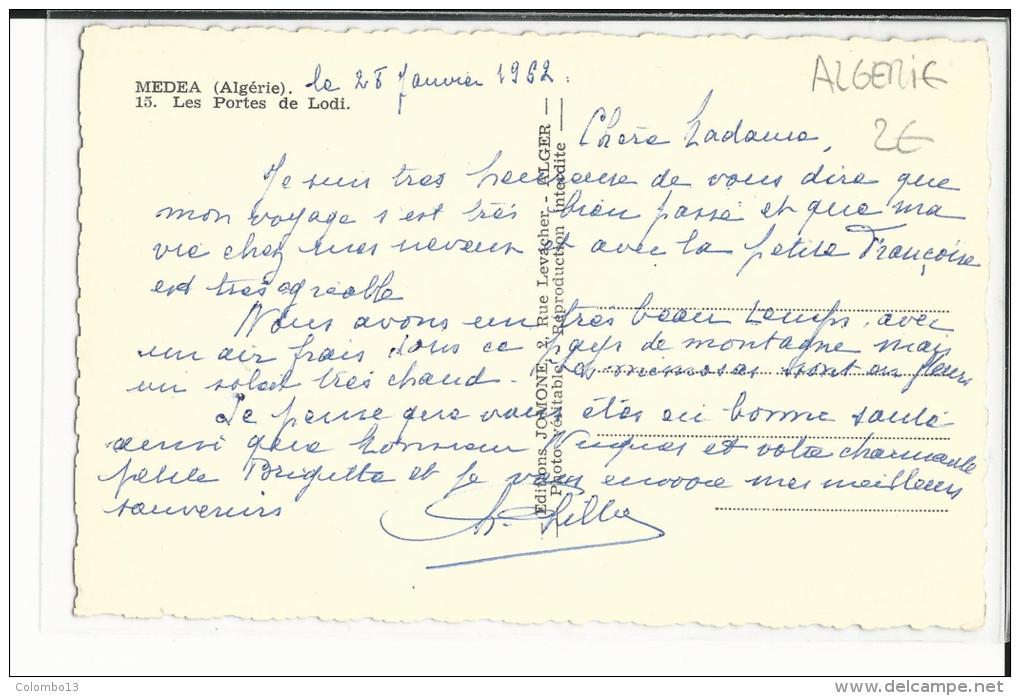 MEDEA (Algérie). le 28 Janvier 1962.
15. Les Portes de Lodi.
ALGERIE
2€
Chère Madame,
Je suis très heureuse de vous dire que
mon voyage s'est très bien passé et que ma
vie chez mes neveux et avec la petite Françoise
est très agréable
Nous avons un très beau temps, avec
un air frais dans ce pays de montagne mais
un soleil très chaud. Les mimosas sont en fleurs
Je pense que vous êtes en bonne santé
ainsi que Monsieur et votre charmante
petite Brigitte et je vous envoie mes meilleurs
souvenirs
Editions JOMONE, 2, Rue Levacher - ALGER -
Photo véritable - Reproduction interdite
Colombo13
www.delcampe.net